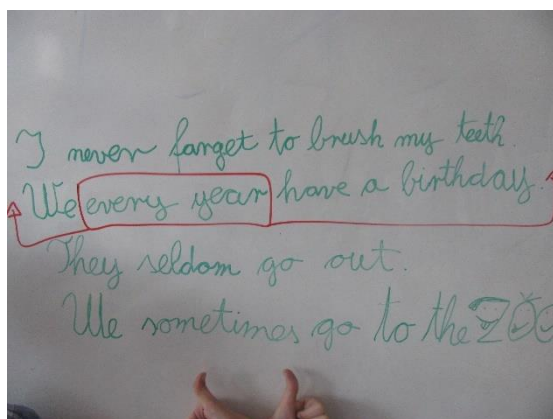 I never farget to brush my teeth.
We every year have a birthday.
They seldom go out.
We sometimes go to the ZOO